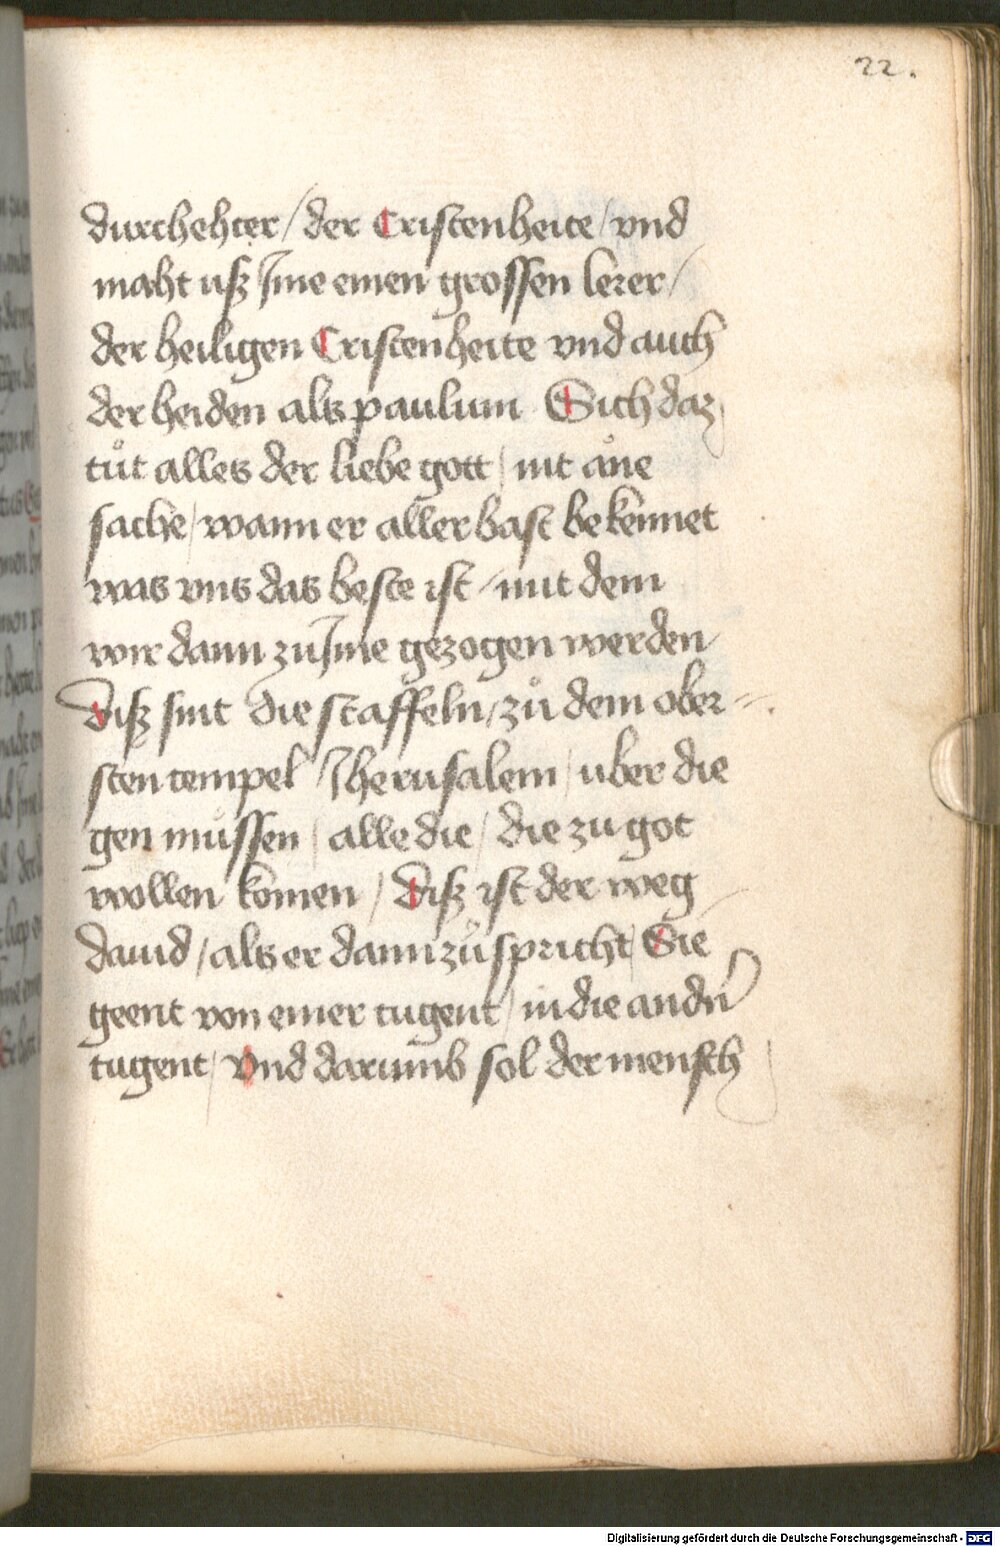 22.
durchehter / der Cristenheite / vnd
maht usz Jme einen grossen lerer /
der heiligen Cristenheite vnd auch
der heiden als paulum Sich daz
tůt alles der liebe gott / nit åne
sache / wann er aller bast bekennet
was vns das beste ist / mit dem
wir dann zu Jme gezogen werden /
Disz sint die staffeln / zů dem ober=
sten tempel Jherusalem / uber die
gen mussen / alle die / die zu got
wollen komen / Disz ist der weg
dauid / als er dann zů spricht / Sie
geent von einer tugent / in die andn̄
tugent / Vnd darumb sol der mensch
Digitalisierung gefördert durch die Deutsche Forschungsgemeinschaft - DFG